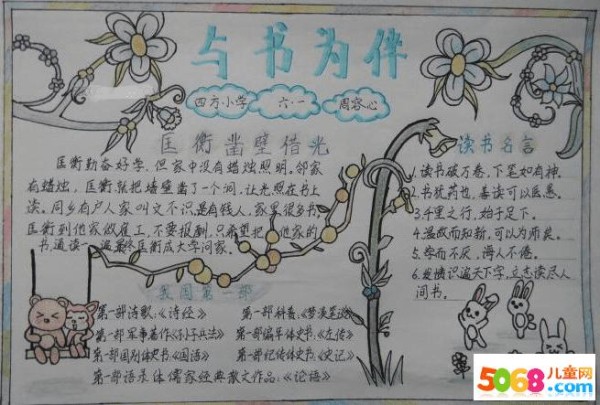 与书为伴
四方小学 六·一 周容心
匡衡凿壁借光
匡衡勤奋好学，但家中没有蜡烛照明。邻家
有蜡烛，匡衡就把墙壁凿了一个洞，让光照在书上
读。同乡有户人家叫文不识，是有钱人，家里很多书，
匡衡到他家做雇工，不要报酬，只希望把他家的
书通读一遍，最终匡衡成大学问家。
读书名言
1.读书破万卷，下笔如有神。
2.书犹药也，善读可以医愚。
3.千里之行，始于足下。
4.温故而知新，可以为师矣。
5.学而不厌，诲人不倦。
6.发愤识遍天下字，立志读尽人
间书。
我国第一部
第一部诗歌：《诗经》 第一部科普：《梦溪笔谈》
第一部军事著作《孙子兵法》 第一部编年体史书《左传》
第一部国别体史书《国语》 第一部纪传体史书：《史记》
第一部语录体儒家经典散文作品：《论语》
5068儿童网
www.5068.com